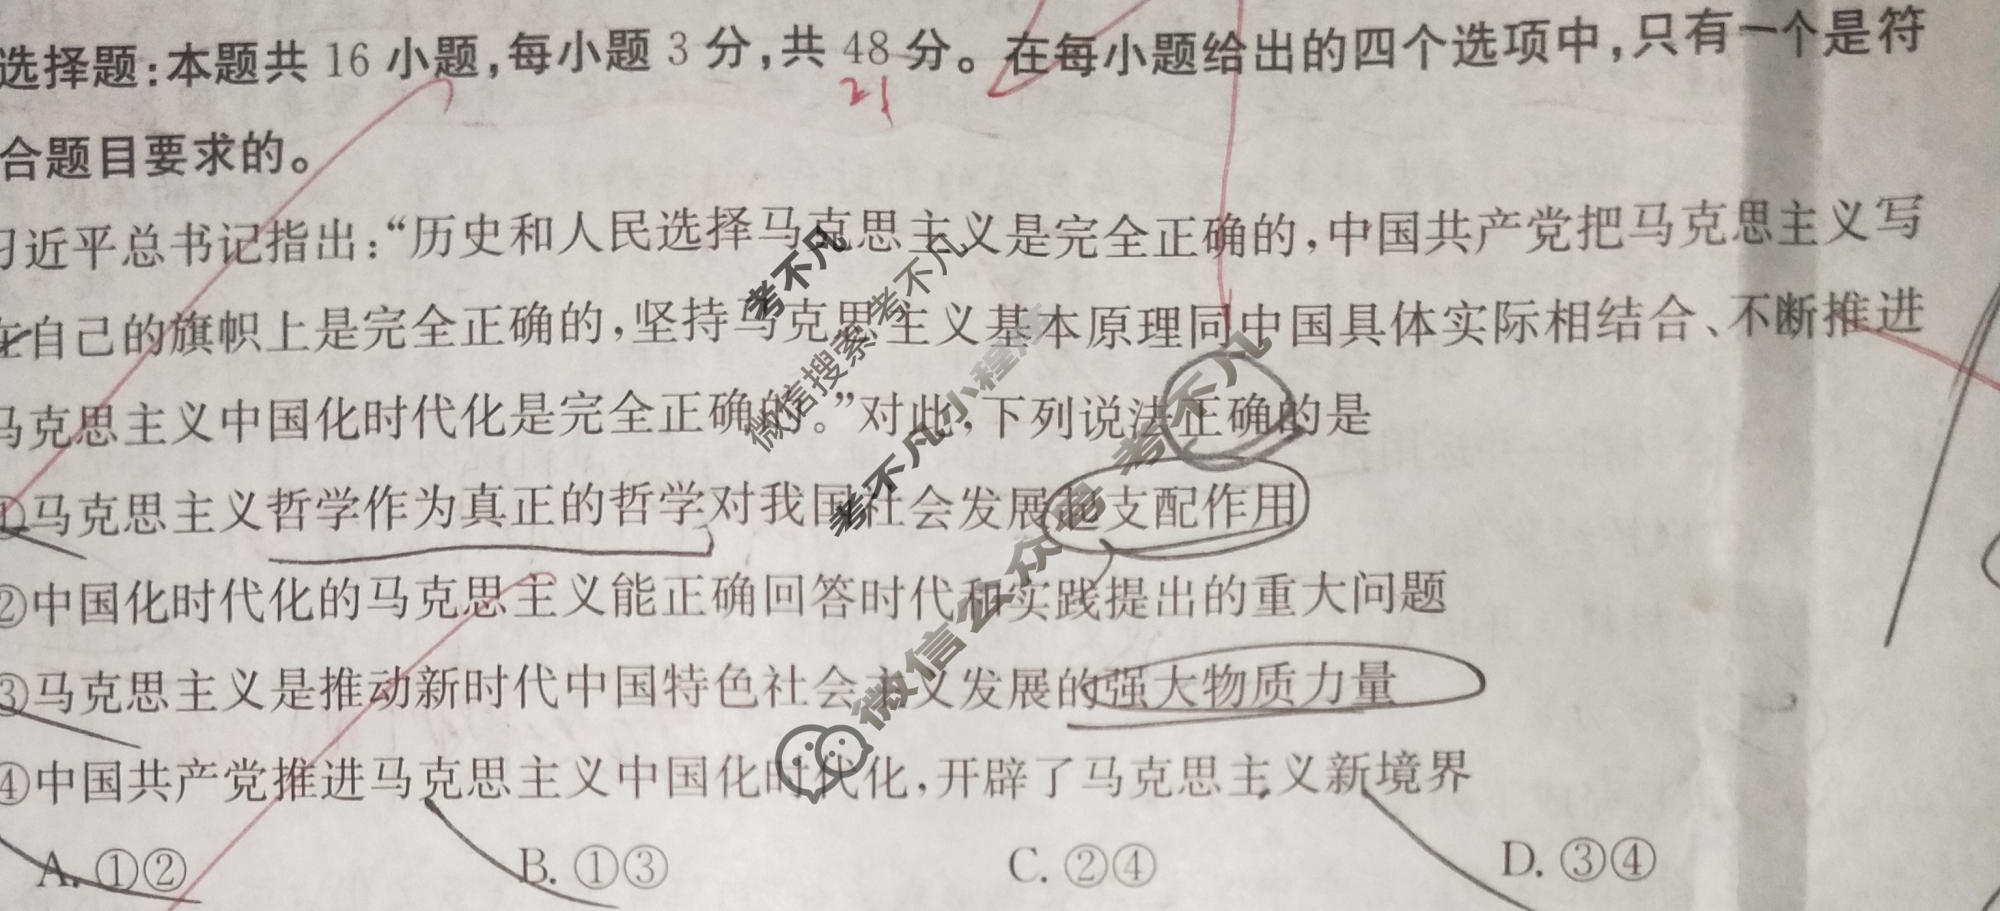 选择题:本题共 16 小题,每小题 3 分,共 48 分。在每小题给出的四个选项中,只有一个是符
12
合题目要求的。
习近平总书记指出:“历史和人民选择马克思主义是完全正确的,中国共产党把马克思主义写
在自己的旗帜上是完全正确的,坚持马克思主义基本原理同中国具体实际相结合、不断推进
马克思主义中国化时代化是完全正确的。”对此,下列说法正确的是
①马克思主义哲学作为真正的哲学对我国社会发展起支配作用
②中国化时代化的马克思主义能正确回答时代和实践提出的重大问题
③马克思主义是推动新时代中国特色社会主义发展的强大物质力量
④中国共产党推进马克思主义中国化时代化,开辟了马克思主义新境界
A. ①② B. ①③ C. ②④ D. ③④
考不凡
微信搜索考不凡
考不凡小程序
微信公众号 考不凡